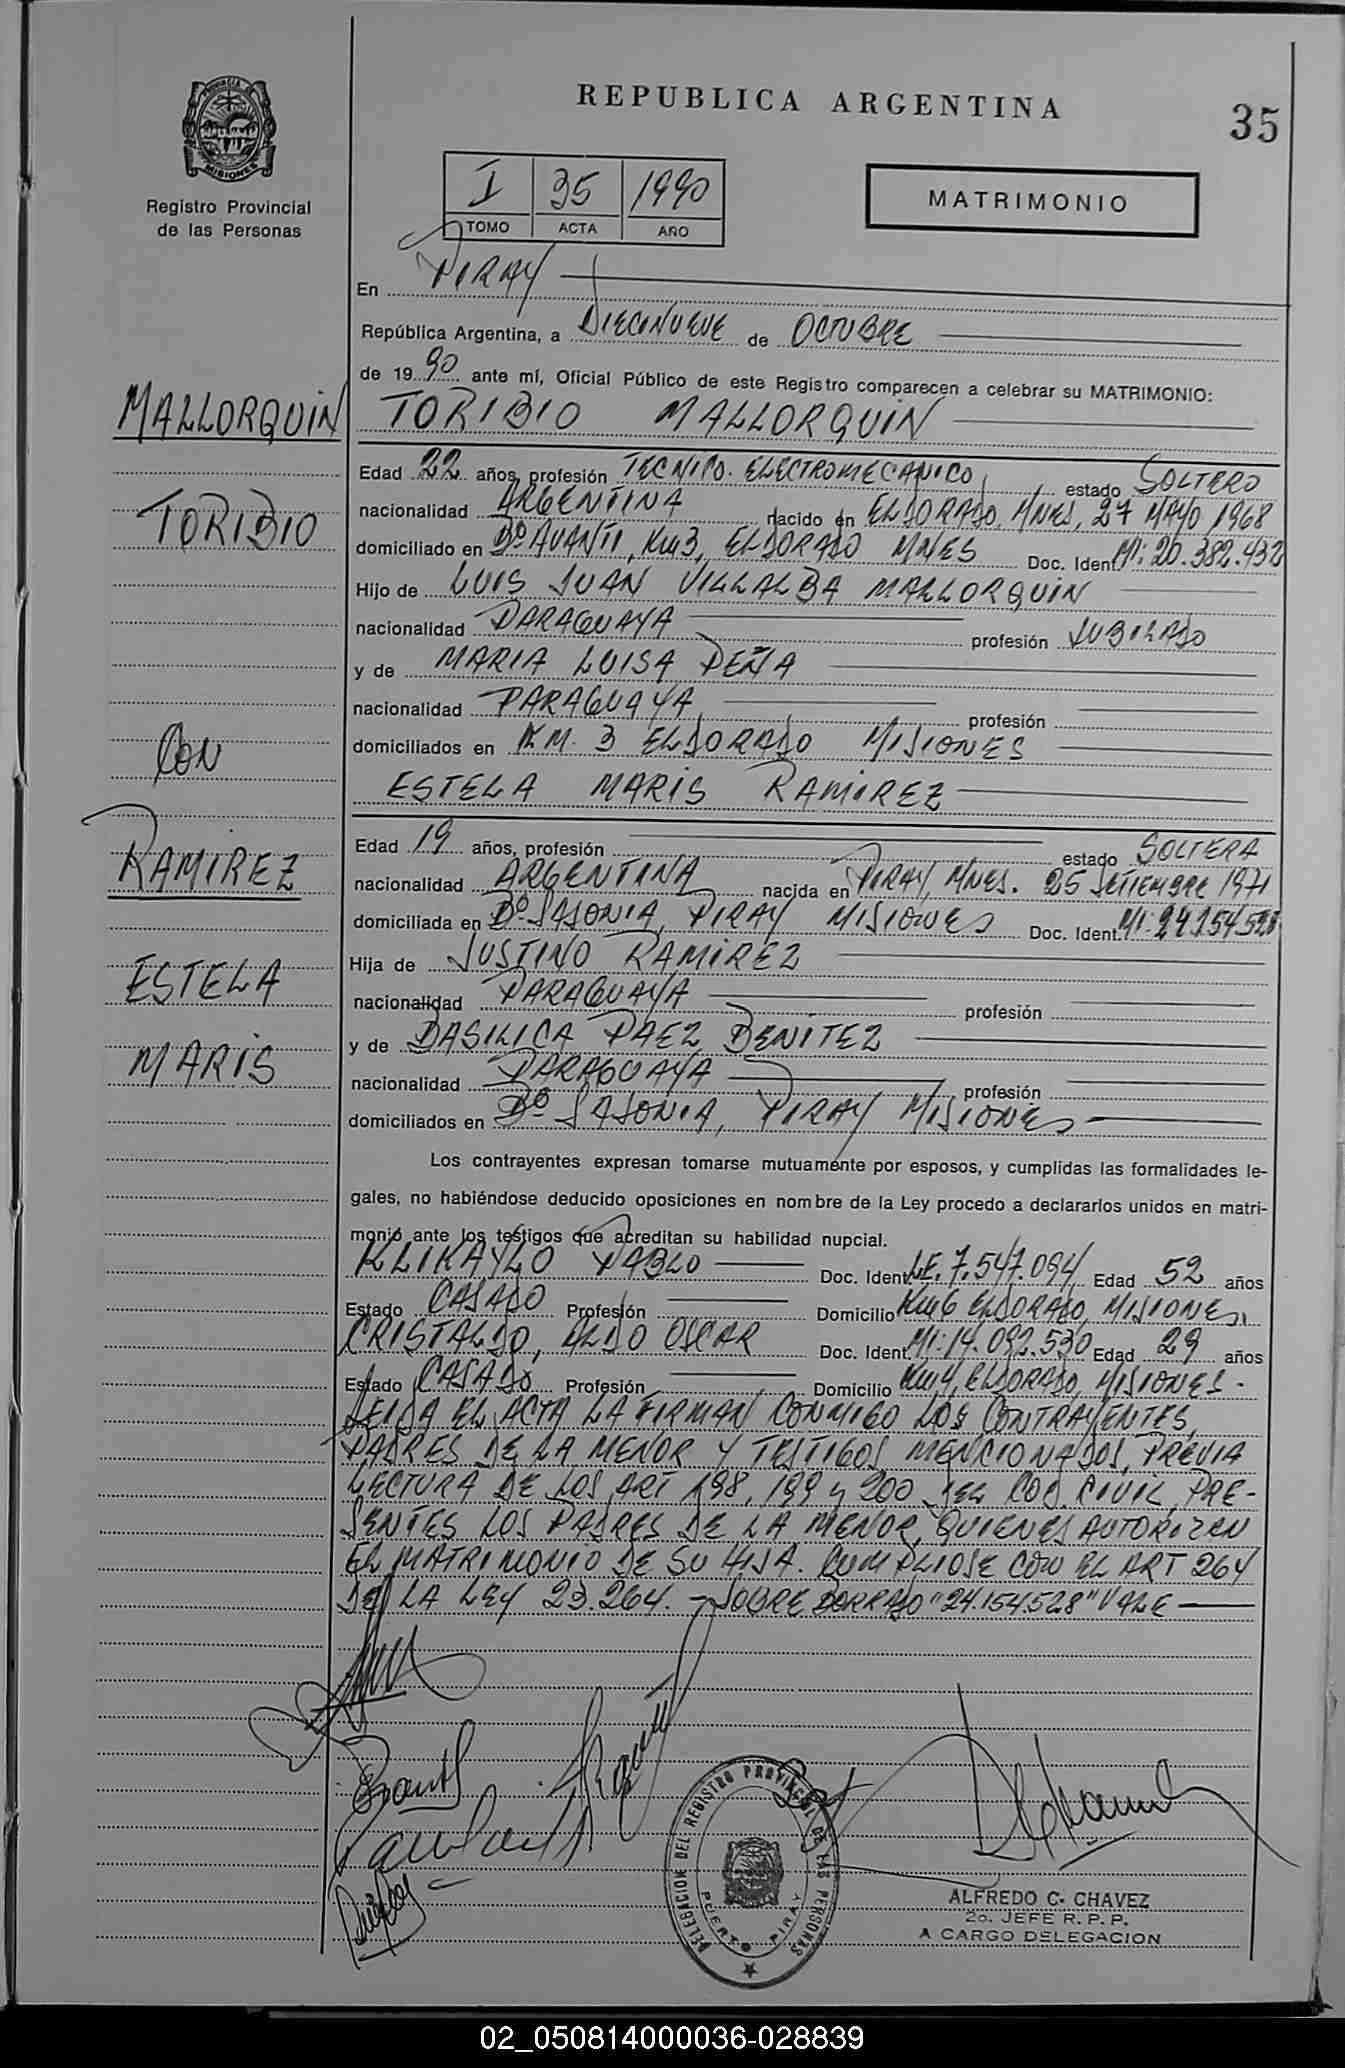 REPUBLICA ARGENTINA
35
PROVINCIA DE
MISIONES
Registro Provincial
de las Personas
I 35 1990
TOMO ACTA AÑO
MATRIMONIO
En PIRAY
República Argentina, a DIECINUEVE de OCTUBRE
de 1990 ante mí, Oficial Público de este Registro comparecen a celebrar su MATRIMONIO:
MALLORQUIN
TORIBIO
CON
RAMIREZ
ESTELA
MARIS
TORIBIO MALLORQUIN
Edad 22 años, profesión TECNICO. ELECTROMECANICO, estado SOLTERO
nacionalidad ARGENTINA nacido en ELDORADO, MNES, 27 MAYO 1968
domiciliado en Bº AVANTI, Km 3, ELDORADO MNES Doc. Ident. MI: 20.382.432
Hijo de LUIS JUAN VILLALBA MALLORQUIN
nacionalidad PARAGUAYA profesión JUBILADO
y de MARIA LUISA PEÑA
nacionalidad PARAGUAYA profesión
domiciliados en KM. 3 ELDORADO MISIONES
ESTELA MARIS RAMIREZ
Edad 19 años, profesión estado SOLTERA
nacionalidad ARGENTINA nacida en PIRAY, MNES. 25 SETIEMBRE 1971
domiciliada en Bº SAJONIA, PIRAY MISIONES Doc. Ident. MI: 24.154.528
Hija de JUSTINO RAMIREZ
nacionalidad PARAGUAYA profesión
y de BASILICA PAEZ BENITEZ
nacionalidad PARAGUAYA profesión
domiciliados en Bº SAJONIA, PIRAY MISIONES
Los contrayentes expresan tomarse mutuamente por esposos, y cumplidas las formalidades le-
gales, no habiéndose deducido oposiciones en nombre de la Ley procedo a declararlos unidos en matri-
monio ante los testigos que acreditan su habilidad nupcial.
KLIKAYLO PABLO Doc. Ident. LE. 7.547.094 Edad 52 años
Estado CASADO Profesión Domicilio Km 6 ELDORADO, MISIONES.
CRISTALDO, ALDO OSCAR Doc. Ident. MI: 14.092.530 Edad 29 años
Estado CASADO Profesión Domicilio Km 4, ELDORADO, MISIONES.-
LEIDA EL ACTA LA FIRMAN CONMIGO LOS CONTRAYENTES,
PADRES DE LA MENOR Y TESTIGOS MENCIONADOS, PREVIA
LECTURA DE LOS ART 198, 199 y 200 DEL COD. CIVIL, PRE-
SENTES LOS PADRES DE LA MENOR, QUIENES AUTORIZAN
EL MATRIMONIO DE SU HIJA. CUMPLIOSE CON EL ART 264
DE LA LEY 23.264. - SOBRE BORRADO "24.154.528" VALE
DELEGACION DEL REGISTRO PROVINCIAL DE LAS PERSONAS
PUERTO PIRAY
ALFREDO C. CHAVEZ
2o. JEFE R. P. P.
A CARGO DELEGACION
02_050814000036-028839